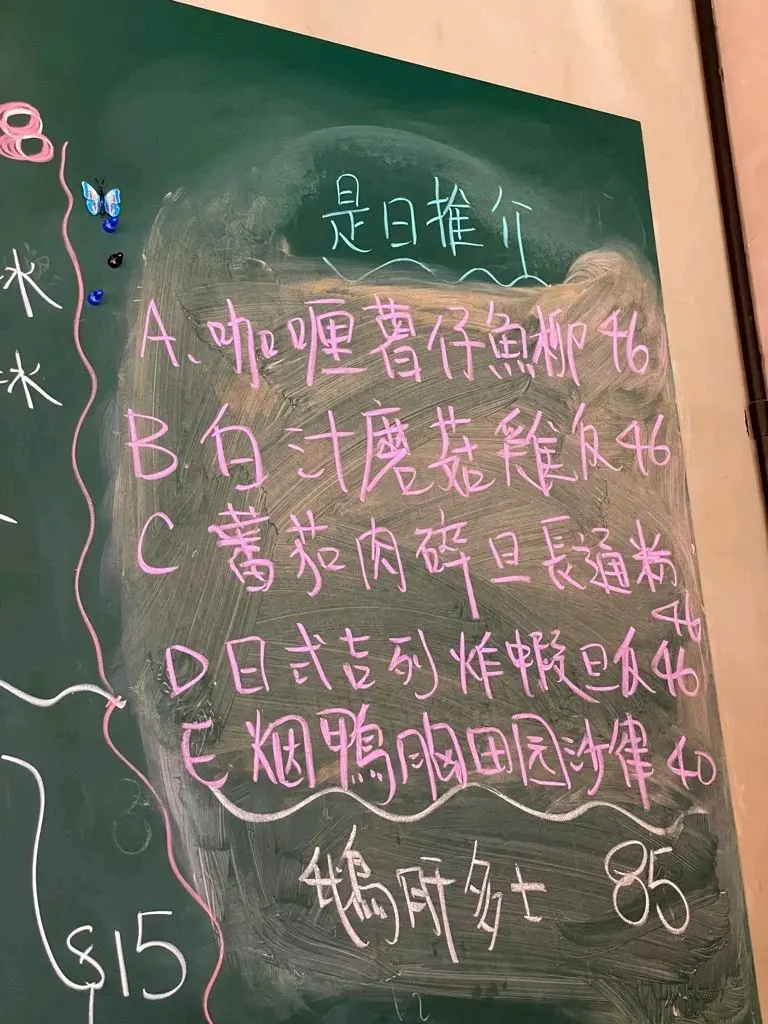 8
水
水
是日推介
A、咖喱薯仔魚柳 46
B 白汁磨菇雞反 46
C 蕃茄肉碎旦長通粉
46
D 日式吉列炸蝦旦反 46
E 烟鴨胸田园沙律 40
鵝肝多士 85
$15